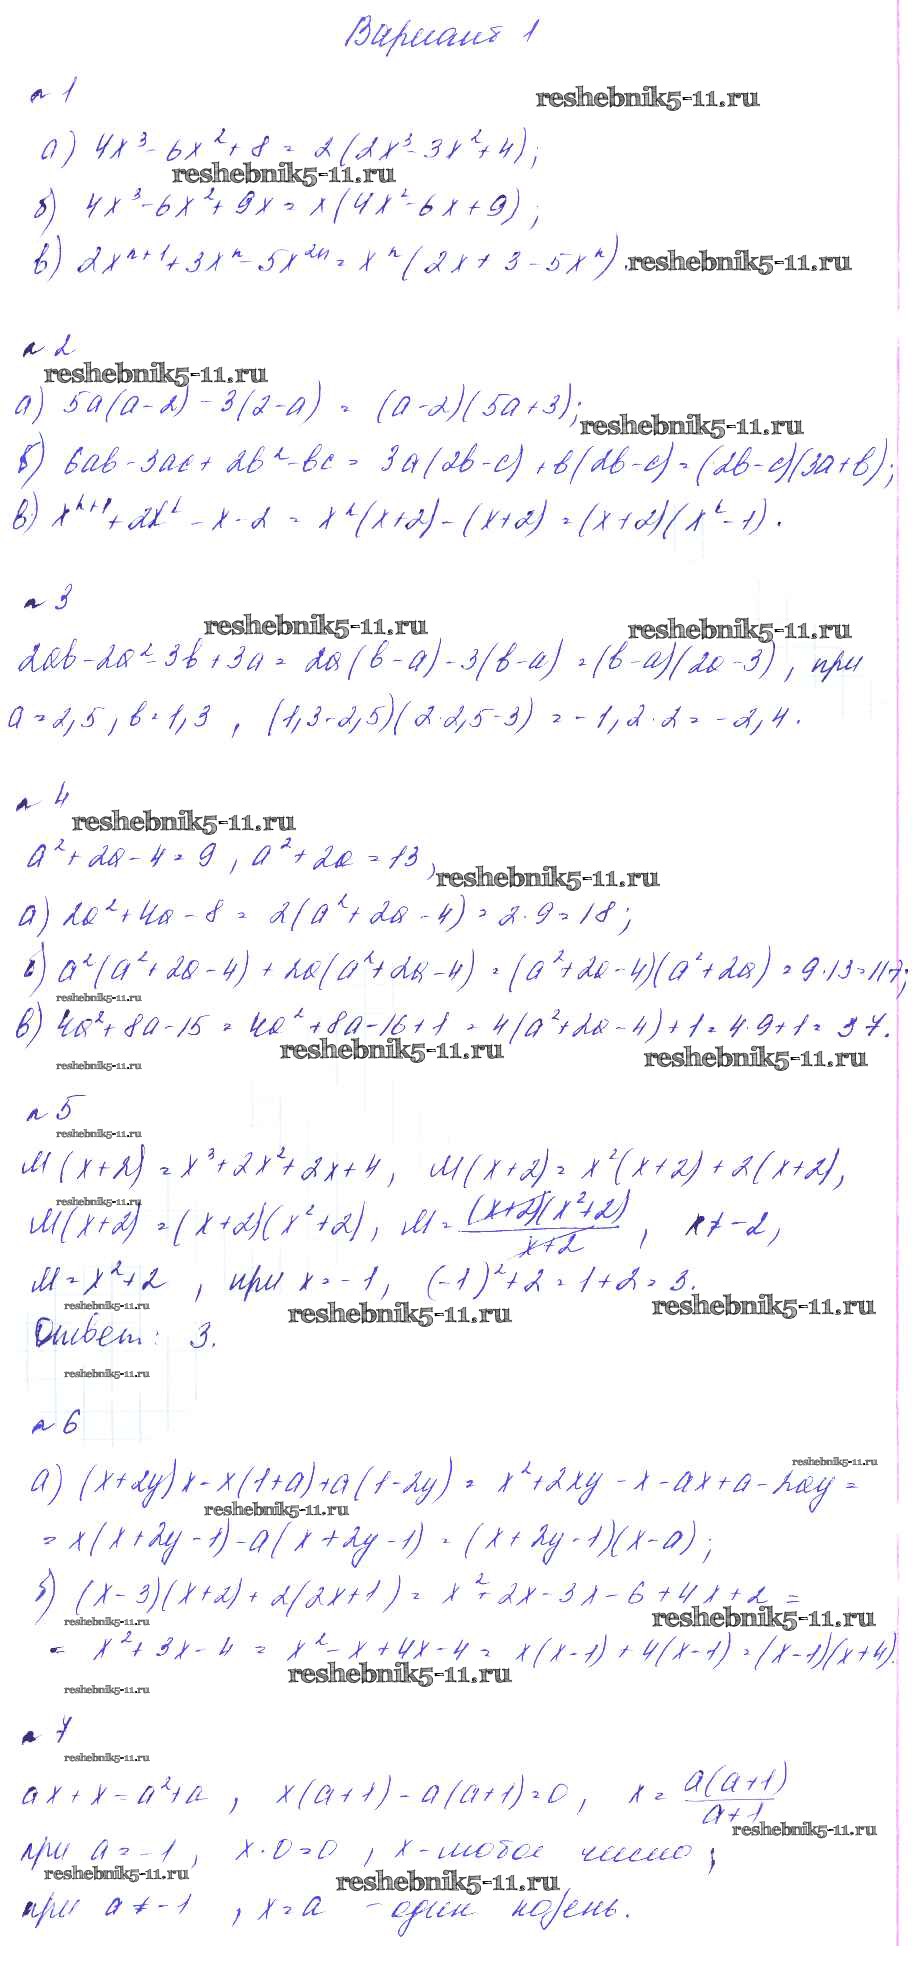 Вариант 1
№1
reshebnik5-11.ru
а) 4x³ - 6x² + 8 = 2(2x³ - 3x² + 4);
reshebnik5-11.ru
б) 4x³ - 6x² + 9x = x(4x² - 6x + 9);
в) 2xⁿ⁺¹ + 3xⁿ - 5x²ⁿ = xⁿ(2x + 3 - 5xⁿ).
reshebnik5-11.ru
№2
reshebnik5-11.ru
а) 5a(a-2) - 3(2-a) = (a-2)(5a+3);
reshebnik5-11.ru
б) 6ab - 3ac + 2b² - bc = 3a(2b-c) + b(2b-c) = (2b-c)(3a+b);
в) xⁿ⁺¹ + 2xⁿ - x - 2 = xⁿ(x+2) - (x+2) = (x+2)(xⁿ-1).
№3
reshebnik5-11.ru reshebnik5-11.ru
2ab - 2a² - 3b + 3a = 2a(b-a) - 3(b-a) = (b-a)(2a-3), при
a = 2,5, b = 1,3, (1,3-2,5)(2·2,5-3) = -1,2·2 = -2,4.
№4
reshebnik5-11.ru
a² + 2a - 4 = 9, a² + 2a = 13,
reshebnik5-11.ru
а) 2a² + 4a - 8 = 2(a² + 2a - 4) = 2·9 = 18;
б) a²(a² + 2a - 4) + 2a(a² + 2a - 4) = (a² + 2a - 4)(a² + 2a) = 9·13 = 117;
reshebnik5-11.ru
в) 4a² + 8a - 15 = 4a² + 8a - 16 + 1 = 4(a² + 2a - 4) + 1 = 4·9 + 1 = 37.
reshebnik5-11.ru reshebnik5-11.ru
reshebnik5-11.ru
№5
reshebnik5-11.ru
M(x+2) = x³ + 2x² + 2x + 4, M(x+2) = x²(x+2) + 2(x+2),
reshebnik5-11.ru
M(x+2) = (x+2)(x²+2), M = (x+2)(x²+2)/(x+2), x ≠ -2,
M = x² + 2, при x = -1, (-1)² + 2 = 1 + 2 = 3.
reshebnik5-11.ru reshebnik5-11.ru reshebnik5-11.ru
Ответ: 3.
reshebnik5-11.ru
№6
reshebnik5-11.ru
а) (x+2y)x - x(1+a) + a(1-2y) = x² + 2xy - x - ax + a - 2ay =
reshebnik5-11.ru
= x(x+2y-1) - a(x+2y-1) = (x+2y-1)(x-a);
б) (x-3)(x+2) + 2(2x+1) = x² + 2x - 3x - 6 + 4x + 2 =
reshebnik5-11.ru reshebnik5-11.ru
= x² + 3x - 4 = x² - x + 4x - 4 = x(x-1) + 4(x-1) = (x-1)(x+4).
reshebnik5-11.ru
reshebnik5-11.ru
№7
reshebnik5-11.ru
ax + x = a² + a, x(a+1) - a(a+1) = 0, x = a(a+1)/a+1
reshebnik5-11.ru
при a = -1, x·0 = 0, x - любое число;
reshebnik5-11.ru reshebnik5-11.ru
при a ≠ -1, x = a - один корень.